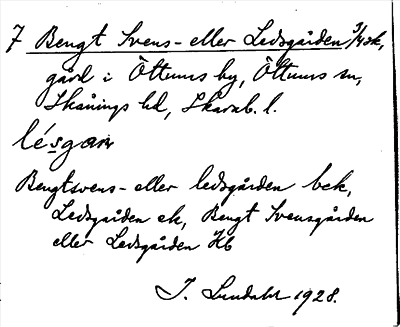 7 Bengt Svens- eller Ledsgården 3/4 ek,
gård i Öttums by, Öttums sn,
Skånings hd, Skarab. l.
lésgan
Bengtsvens- eller ledsgården bek,
Ledsgården ek, Bengt Svensgården
eller Ledsgården Hb
I. Lundahl 1928.